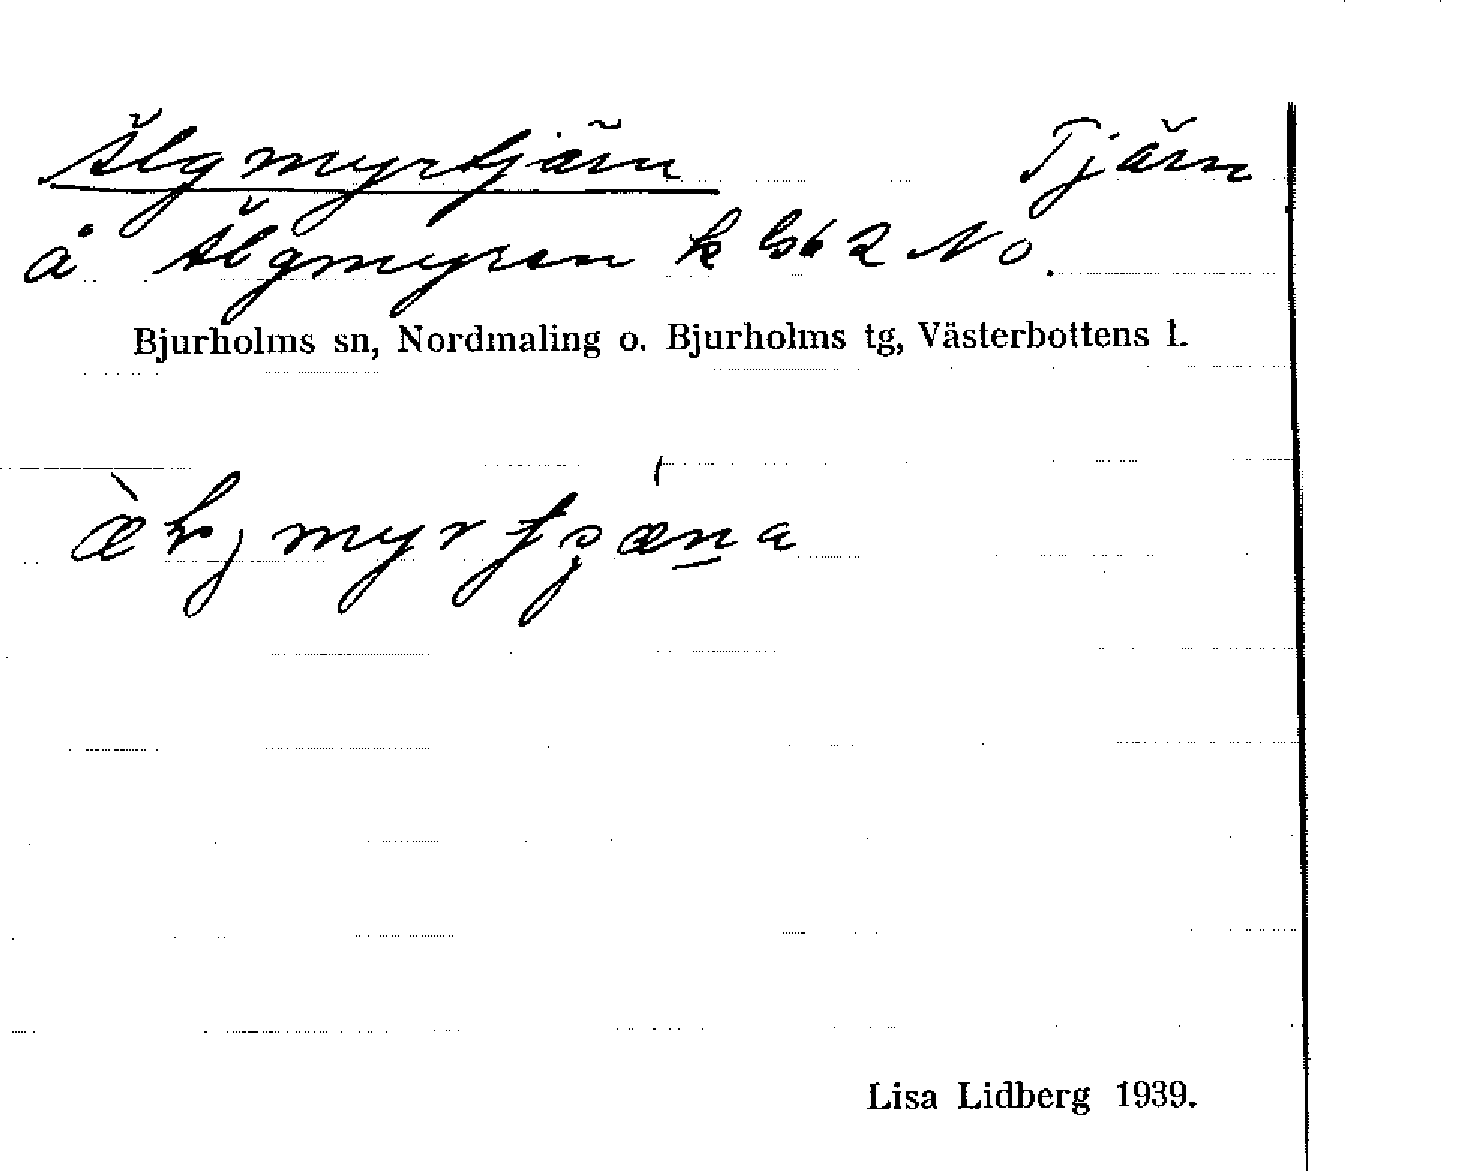 Älgmyrtjärn Tjärn
å Älgmyren k bl 2 No.
Bjurholms sn, Nordmaling o. Bjurholms tg, Västerbottens l.
Lisa Lidberg 1939.